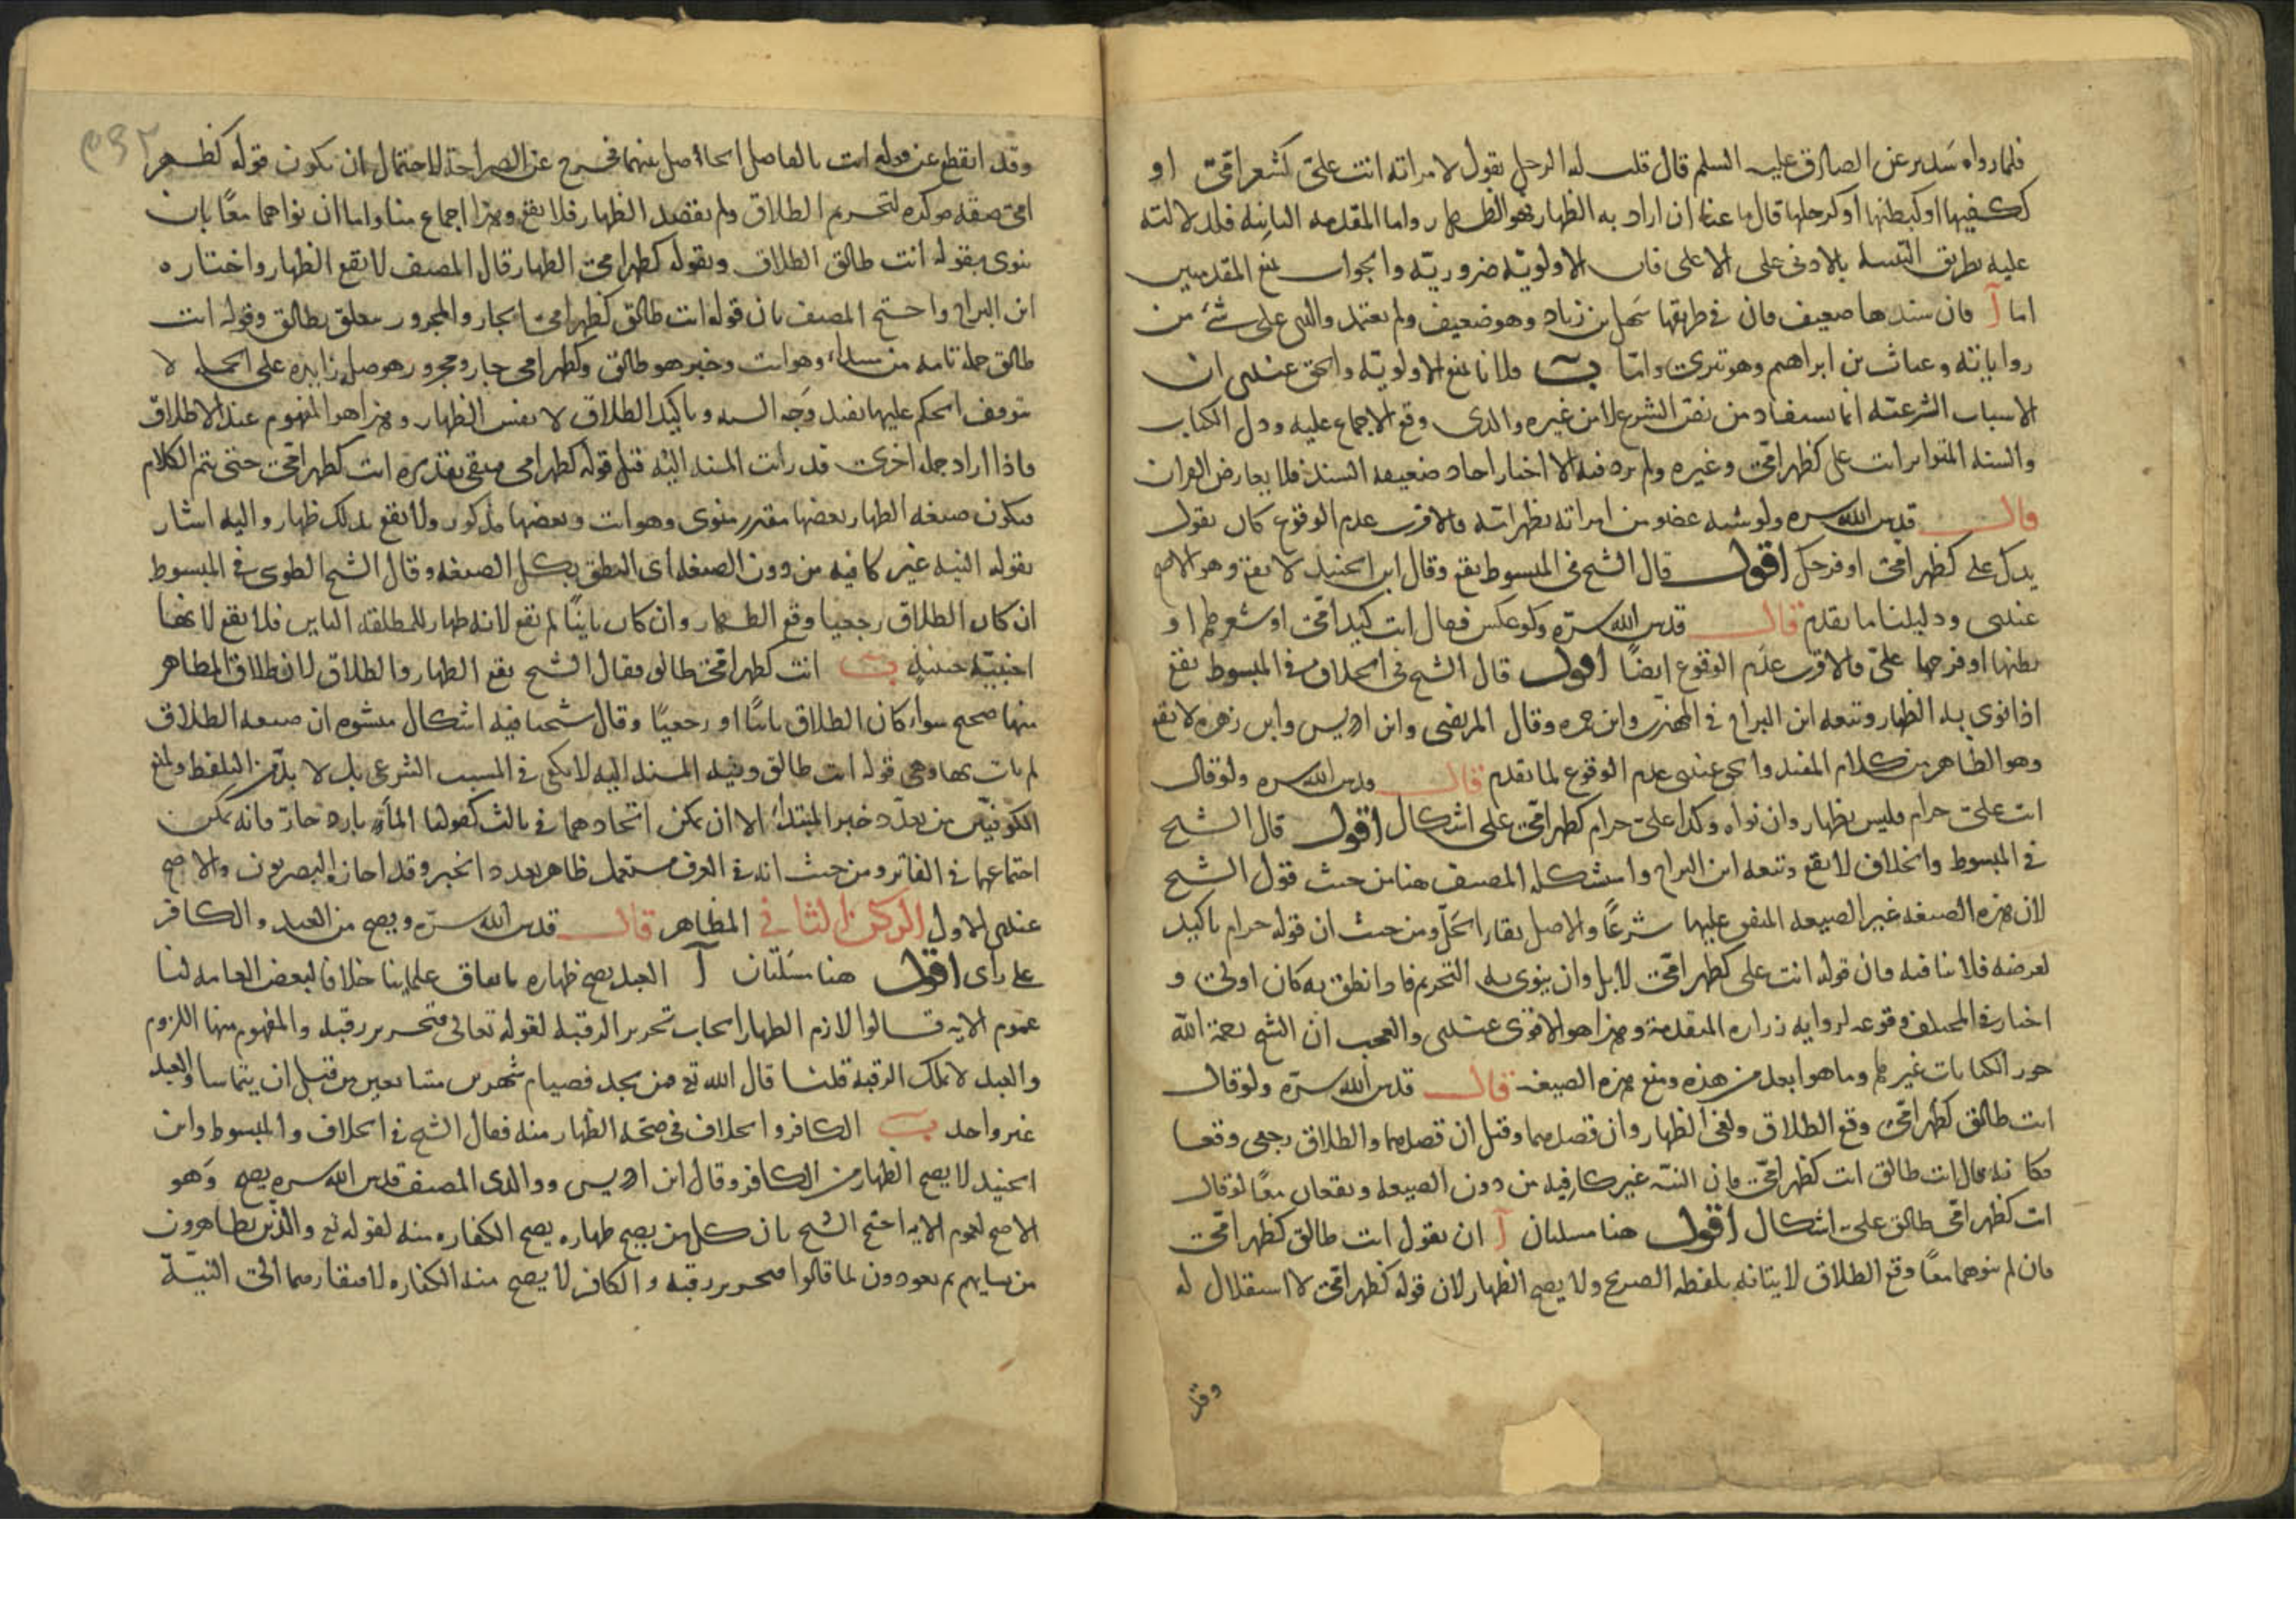 فلما رواه سدير عن الصادق عليه السلم قال قلت له الرجل يقول لامراته انت علىّ كشعر امّى او
ككفيها او كبطنها او كرجلها قال ما عنا ان اراد به الظهار فهو الظهار واما المقدمه الثانيه فلدلالته
عليه بطريق التنبيه بالادنى على الاعلى فان الاولويّه ضروريّه والجواب بمنع المقدمتين
اما آ فان سندها ضعيف فان فى طريقها سَهل بن زياد وهو ضعيف ولم يعتمد والدى على شئ من
رواياته وغياث بن ابراهيم وهو بترى وامّا ب فلانا نمنع الاولويّه والحق عندى ان
الاسباب الشرعيّه انما يستفاد من نصّ الشرع لا من غيره والذى وقع الاجماع عليه ودل الكتاب
والسنه المتواتر انت على كظهر امّى وغيره ولم يرد فيه الا اخبار احاد ضعيفه السند فلا يعارض القران
قال قدس الله سره ولو شبه عضو من امراته بظهر امّه فالاقرب عدم الوقوع كان يقول
يدك على كظهر امّى او فرجك اقول قال الشيخ فى المبسوط يقع وقال ابن الجنيد لا يقع وهو الاصح
عندى ودليلنا ما تقدم قال قدس الله سرّه ولو عكس فقال انت كيد امّى او شعرها او
بطنها او فرجها علىّ فالاقرب عدم الوقوع ايضًا اقول قال الشيخ فى الخلاف وفى المبسوط يقع
اذا نوى به الظهار وتبعه ابن البراج فى المهذب وابن حمزه وقال المرتضى وابن ادريس وابن زهره لا يقع
وهو الظاهر من كلام المفيد والحق عندى عدم الوقوع لما تقدم قال قدس الله سره ولو قال
انت علىّ حرام فليس بظهار وان نواه وكذا علىّ حرام كظهر امّى على اشكال اقول قال الشيخ
فى المبسوط والخلاف لا يقع وتبعه ابن البراج واستشكله المصنف هنا من حيث قول الشيخ
لان هذه الصيغه غير الصيغه المتفق عليها شرعًا والاصل بقاء الحَلّ ومن حيث ان قوله حرام تاكيد
لغرضه فلا ينافيه فان قوله انت على كظهر امّى لابل وان ينوى به التحريم فاذا نطق به كان اولى و
اختار فى المختلف وقوعه لروايه زراره المتقدمة وهذا هو الاقوى عندى والعجب ان الشيخ رحمة الله
جوز الكنايات غيرهم وما هو ابعد من هذه ومنع هذه الصيغه قال قدس الله سرّه ولو قال
انت طالق كظهر امّى وقع الطلاق ولغى الظهار وان قصدهما وقيل ان قصدهما والطلاق رجعى وقعا
فكانه قال انت طالق انت كظهر امّى فان النيّه غير كافيه من دون الصيغه ويقعان معًا لو قال
انت كظهر امّى طالق على اشكال اقول هنا مسلتان آ ان يقول انت طالق كظهر امّى
فان لم ينوهما معًا وقع الطلاق لايتانه بلفظه الصريح ولا يصح الظهار لان قوله كظهر امّى لا استقلال له
وقد
٣٩٢
وقد انقطع عن قوله انت بالفاصل الحاصل بينهما فخرج عن الصراحة للاحتمال ان يكون قوله كظهر
امّى صفه موكده لتحريم الطلاق ولم يقصد الظهار فلا يقع وهذا اجماع منا واما ان نواهما معًا بان
ينوى بقوله انت طالق الطلاق وبقوله كظهر امّى الظهار قال المصنف لا يقع الظهار واختاره
ابن البراج واحتج المصنف بان قوله انت طالق كظهر امّى الجار والمجرور متعلق بطالق وقوله انت
طالق جملة تامه من مبتداء وهو انت وخبر هو طالق وكظهر امى جار ومجرور هو صله زايده على الجمله لا
يتوقف الحكم عليها يفيد وَجه الشبه وتاكيد الطلاق لا نفس الظهار وهذا هو المفهوم عند الاطلاق
فاذا اراد جملة اخرى قدر انت المسند اليه قبل قوله كظهر امى فبقى تقديره انت كظهر امّى حتى يتم الكلام
فيكون صيغه الظهار بعضها مقدر منوى وهو انت وبعضها مذكور ولا يقع بذلك ظهار واليه اشار
بقوله النيه غير كافيه من دون الصيغه اى النطق بكل الصيغه وقال الشيخ الطوسى فى المبسوط
ان كان الطلاق رجعيا وقع الظهار وان كان باينًا لم يقع لانه ظهار للمطلقه الباين فلا يقع لانها
اجنبيّه حينيذ ب انت كظهر امّى طالق فقال الشيخ يقع الظهار والطلاق لان طلاق المظاهر
منها صحيح سواء كان الطلاق باينًا او رجعيًا وقال شيخنا فيه اشكال ينشوه ان صيغه الطلاق
لم يات بها وهى قوله انت طالق ونيه المسند اليه لا يكفى فى السبب الشرعى بل لا بدّ من التلفظ ولمنع
الكوفيّين من تعدّد خبر المبتدأ الا ان يمكن اتحادهما فى ثالث كقولنا المآء بارد حارّ فانه يمكن
اجتماعهما فى الفاتر ومن حيث انه فى العرف مستعمل ظاهر بعدد الخبر وقد اجازه البصريون والاصح
عندى الاول الركن الثانى المظاهر قال قدس الله سرّه ويصح من العبد والكافر
على راى اقول هنا مسَلتان آ العبد يصح ظهاره باتفاق علماينا خلافا لبعض العامه لنا
عموم الايه قالوا لازم الظهار ايجاب تحرير الرقبه لقوله تعالى فتحرير رقبه والمفهوم منها اللزوم
والعبد لا يملك الرقبه قلنا قال الله تع فمن يجد فصيام شهرين متتابعين من قبل ان يتماسا والعبد
غير واجد ب الكافر والخلاف فى صحّه الظهار منه فقال الشيخ فى الخلاف والمبسوط وابن
الجنيد لا يصح الظهار من الكافر وقال ابن ادريس ووالدى المصنف قدس الله سره يصح وَهو
الاصح لعموم الايه احتج الشيخ بان كل من يصح ظهاره يصح الكفاره منه لقوله تع والذين يظاهرون
من نسايهم ثم يعودون لما قالوا فتحرير رقبه والكافر لا يصح منه الكفاره لافتقارهما الى النيّة